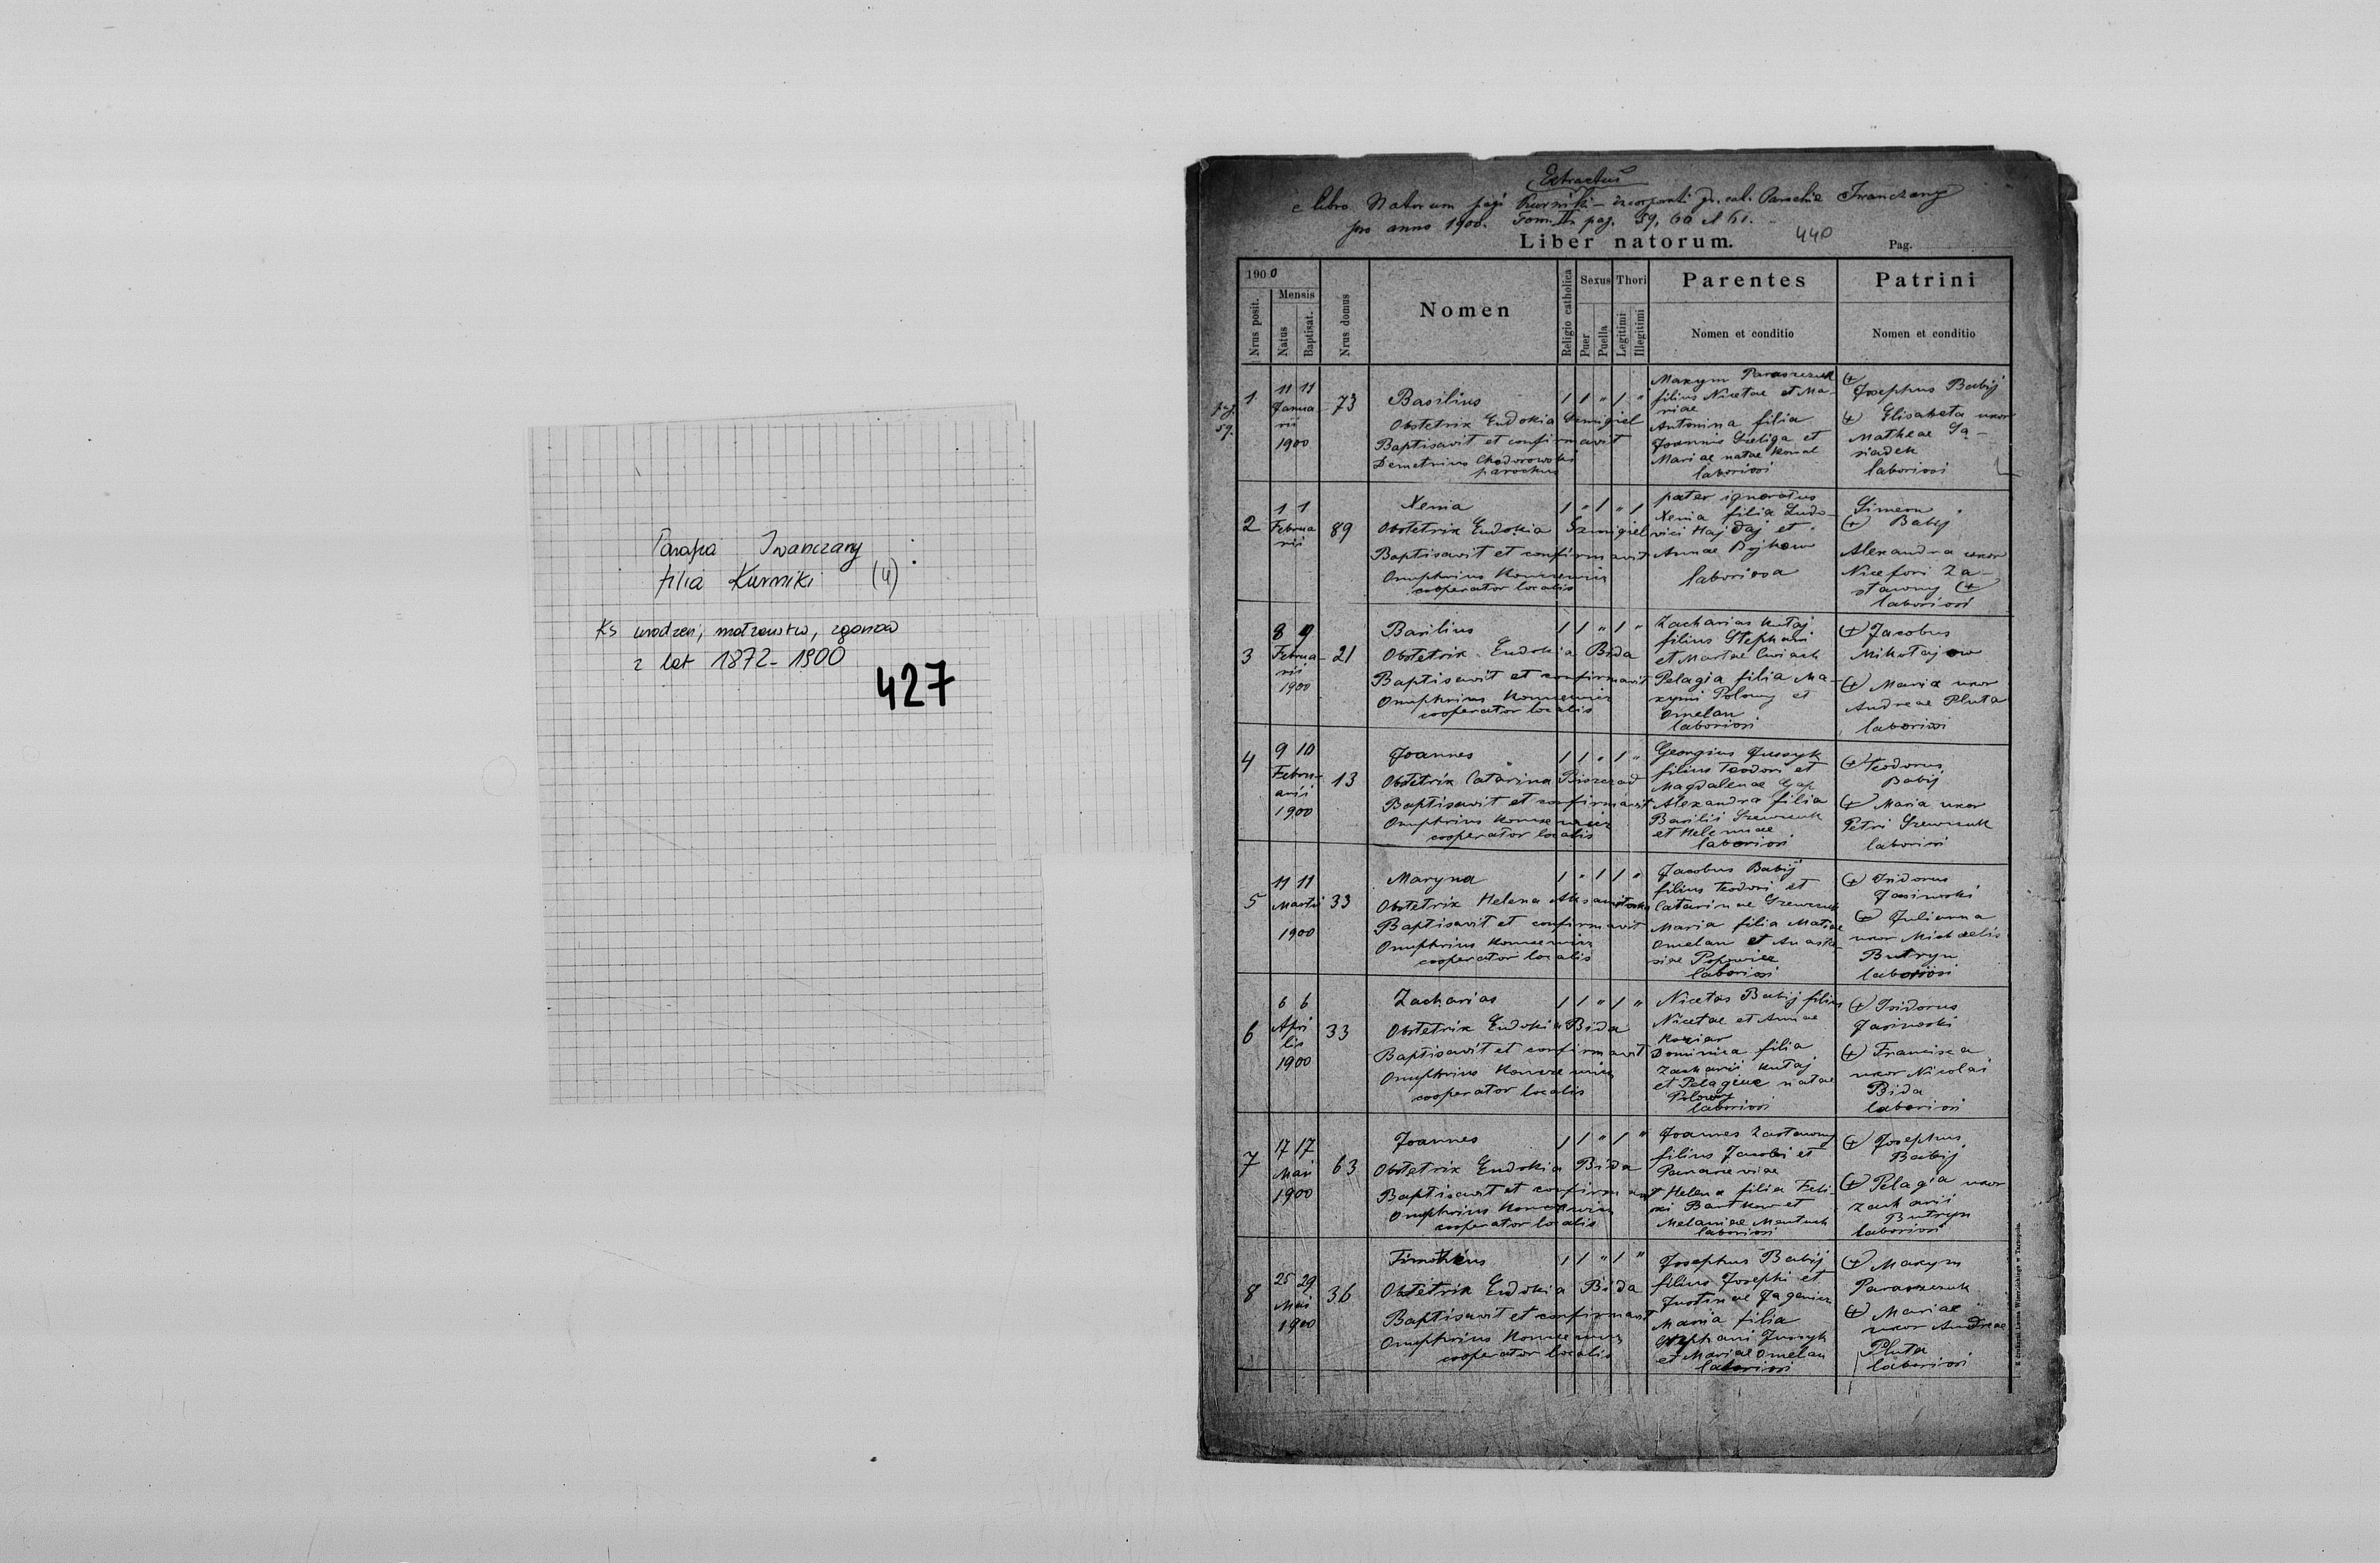 Parafia Iwanczany :
filia Kurniki (4)
Ks urodzeń, małżeństw, zgonów
z lat 1872-1900
427
Extractus
e libro Natorum pagi Kurniki - incorporati gr. cat. Parochiae Iwanczany
pro anno 1900. Tom. II. pag. 59, 60 et 61.
Liber natorum.
440
Pag.
1900
Nrus posit.
Mensis
Natus
Baptisat.
Nrus domus
Nomen
Religio catholica
Sexus
Puer
Puella
Thori
Legitimi
Illegitimi
Parentes
Nomen et conditio
Patrini
Nomen et conditio
pag. 59.
1
11 11
Janua
rii
1900
73
Basilius
Obstetrix Eudokia Szmigiel
Baptisavit et confirmavit
Demetrius Chodorowski
parochus
1 1 " 1 "
Maxym Paraszczuk
filius Nicetae et Ma-
riae
Antonina filia
Joannis Szeliga et
Mariae natae Kowal
laboriosi
Josephus Babij
Elisabeta uxor
Matheae Są-
siadek
laboriosi
2
1 1
Februa
rii
89
Xenia
Obstetrix Eudokia Szmigiel
Baptisavit et confirmavit
Onuphrius
cooperator localis
1 " 1 " 1
pater ignoratus
Xenia filia Ludo-
vici Hajdaj et
Annae
laboriosa
Simeon
Babij
Alexandra uxor
Nicefori Za-
stawny
laboriosi
3
8 9
Februa-
rii
1900
21
Basilius
Obstetrix Eudokia Bida
Baptisavit et confirmavit
Onuphrius
cooperator localis
1 1 " 1 "
Zacharias Kutaj
filius Stephani
et Martae
Pelagia filia Ma-
xymi Polowy et
Omelan
laboriosi
Jacobus
Mikołajow
Maria uxor
Andreae Pluta
laboriosi
4
9 10
Febru-
arii
1900
13
Joannes
Obstetrix Catarina
Baptisavit et confirmavit
Onuphrius
cooperator localis
1 1 " 1 "
Georgius Jussyk
filius Teodori et
Magdalenae
Alexandra filia
Basilii Szewczuk
et Helenae
laboriosi
Teodorus
Babij
Maria uxor
Petri Szewczuk
laboriosi
5
11 11
Martii
1900
33
Maryna
Obstetrix Helena
Baptisavit et confirmavit
Onuphrius
cooperator localis
1 " 1 1 "
Jacobus Babij
filius Teodori et
Catarinae Szewczuk
Maria filia
Omelan et Anasta-
siae Popowicz
laboriosi
Isidorus
Jasinski
Julianna
uxor Michaelis
Butryn
laboriosi
6
6 6
Apri
lis
1900
33
Zacharias
Obstetrix Eudokia Bida
Baptisavit et confirmavit
Onuphrius
cooperator localis
1 1 " 1 "
Nicetas Babij filius
Nicetae et Annae
Koziar
Dominica filia
Zacharii Kutaj
et Pelagiae natae
Polowy
laboriosi
Isidorus
Jasinski
Francisca
uxor Nicolai
Bida
laboriosi
7
17 17
Maii
1900
63
Joannes
Obstetrix Eudokia Bida
Baptisavit et confirmavit
Onuphrius
cooperator localis
1 1 " 1 "
Joannes Zastawny
filius Jacobi et
Parasceviae
Helena filia
Bartkow et
Melaniae
laboriosi
Josephus
Babij
Pelagia uxor
Zacharii
Butryn
laboriosi
8
25 29
Maii
1900
36
Timotheus
Obstetrix Eudokia Bida
Baptisavit et confirmavit
Onuphrius
cooperator localis
1 1 " 1 "
Josephus Babij
filius Josephi et
Justinae
Maria filia
Stephani Jussyk
et Mariae Omelan
laboriosi
Maxym
Paraszczuk
Mariae
uxor Andreae
Pluta
laboriosi